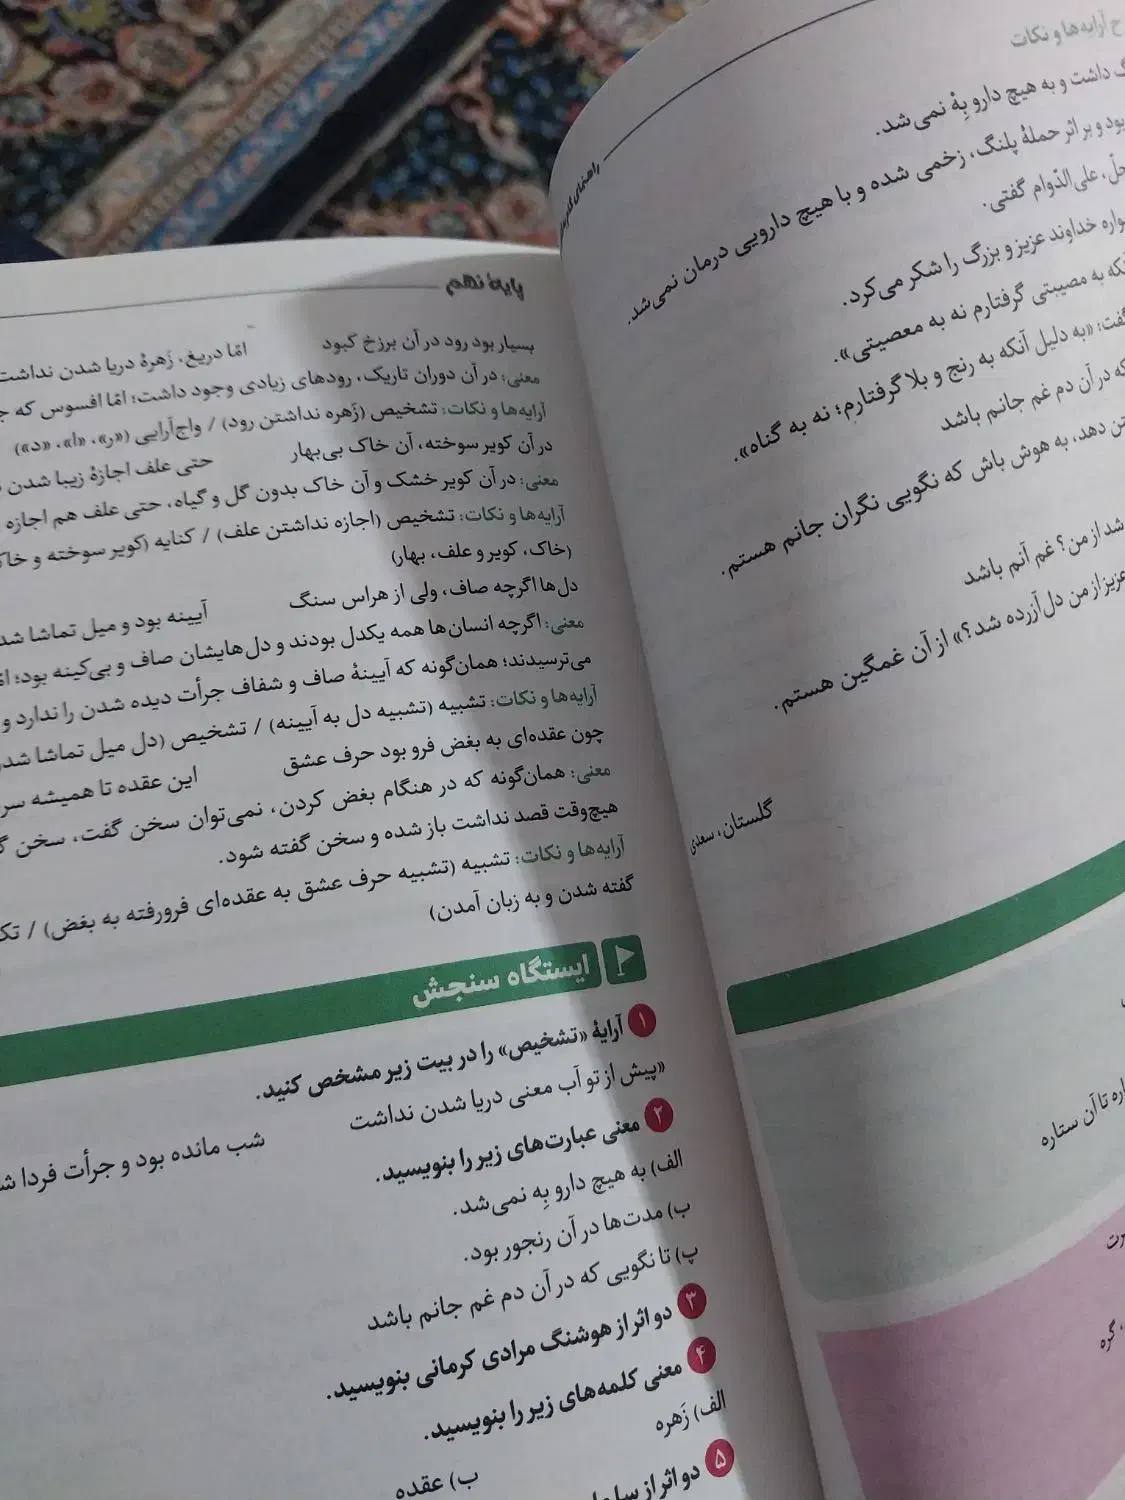 ح آرایه‌ها و نکات
گ داشت و به هیچ دارو بِهْ نمی‌شد.
بود و بر اثر حملهٔ پلنگ، زخمی شده و با هیچ دارویی درمان نمی‌شد.
علی‌الدّوام گفتی.
خداوند عزیز و بزرگ را شکر می‌کرد.
آنکه به مصیبتی گرفتارم نه به معصیتی».
گفت: «به دلیل آنکه به رنج و بلا گرفتارم؛ نه به گناه».
که در آن دم غم جانم باشد
تن دهد، به هوش باش که نگویی نگران جانم هستم.
شد از من؟ غم آنم باشد
عزیز از من دل‌آزرده شد؟» از آن غمگین هستم.
گلستان، سعدی
تا آن ستاره
گره
راهنمای گام
پایهٔ نهم
بسیار بود رود در آن برزخ کبود امّا دریغ، زَهرهٔ دریا شدن نداشت
معنی: در آن دوران تاریک، رودهای زیادی وجود داشت؛ امّا افسوس که
آرایه‌ها و نکات: تشخیص (زَهره نداشتن رود) / واج‌آرایی («ر»، «ا»، «د»)
در آن کویر سوخته، آن خاک بی‌بهار حتی علف اجازهٔ زیبا شدن
معنی: در آن کویر خشک و آن خاک بدون گل و گیاه، حتی علف هم اجازه
آرایه‌ها و نکات: تشخیص (اجازه نداشتن علف) / کنایه (کویر سوخته و
(خاک، کویر و علف، بهار)
دل‌ها اگرچه صاف، ولی از هراس سنگ آیینه بود و میل تماشا
معنی: اگرچه انسان‌ها همه یکدل بودند و دل‌هایشان صاف و بی‌کینه بود؛
می‌ترسیدند؛ همان‌گونه که آیینهٔ صاف و شفاف جرأت دیده شدن را ندارد و
آرایه‌ها و نکات: تشبیه (تشبیه دل به آیینه) / تشخیص (دل میل تماشا
چون عقده‌ای به بغض فرو بود حرف عشق این عقده تا همیشه سر
معنی: همان‌گونه که در هنگام بغض کردن، نمی‌توان سخن گفت، سخن
هیچ‌وقت قصد نداشت باز شده و سخن گفته شود.
آرایه‌ها و نکات: تشبیه (تشبیه حرف عشق به عقده‌ای فرورفته به بغض) /
گفته شدن و به زبان آمدن)
ایستگاه سنجش
۱ آرایهٔ «تشخیص» را در بیت زیر مشخص کنید.
«پیش از تو آب معنی دریا شدن نداشت شب مانده بود و جرأت فردا
۲ معنی عبارت‌های زیر را بنویسید.
الف) به هیچ دارو بِه نمی‌شد.
ب) مدت‌ها در آن رنجور بود.
پ) تا نگویی که در آن دم غم جانم باشد
۳ دو اثر از هوشنگ مرادی کرمانی بنویسید.
۴ معنی کلمه‌های زیر را بنویسید.
الف) زَهره ب) عقده
۵ دو اثر از